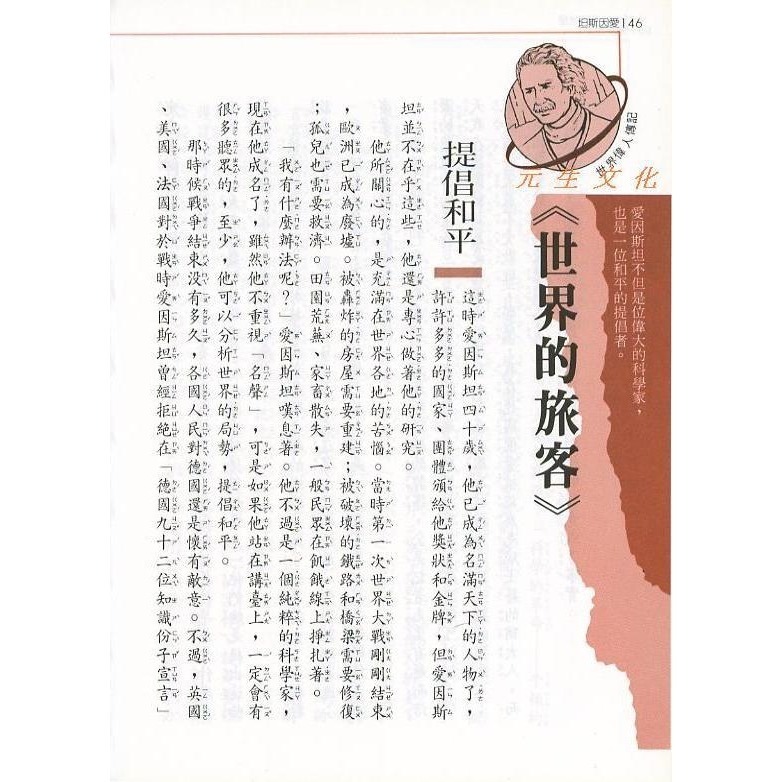 坦斯因愛146
世界偉人傳記
元生文化
愛因斯坦不但是位偉大的科學家，
也是一位和平的提倡者。
《世界的旅客》
提倡和平
這時愛因斯坦四十歲，他已成為名滿天下的人物了，
許許多多的國家、團體頒給他獎狀和金牌，但愛因斯
坦並不在乎這些，他還是專心做著他的研究。
他所關心的，是充滿在世界各地的苦惱。當時第一次世界大戰剛剛結束
，歐洲已成為廢墟。被轟炸的房屋需要重建；被破壞的鐵路和橋梁需要修復
；孤兒也需要救濟。田園荒蕪、家畜散失，一般民眾在飢餓線上掙扎著。
「我有什麼辦法呢？」愛因斯坦嘆息著。他不過是一個純粹的科學家，
現在他成名了，雖然他不重視「名聲」，可是如果他站在講臺上，一定會有
很多聽眾的，至少，他可以分析世界的局勢，提倡和平。
那時候戰爭結束沒有多久，各國人民對德國還是懷有敵意。不過，英國
、美國、法國對於戰時愛因斯坦曾經拒絕在「德國九十二位知識份子宣言」